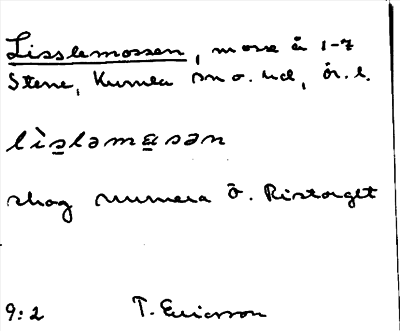 Lisslemossen, mosse å 1-7
Stene, Kumla sn o. hd, ör. l.
lìslamåsən
skog numera Ö. Ristorget
9:2 T. Ericsson